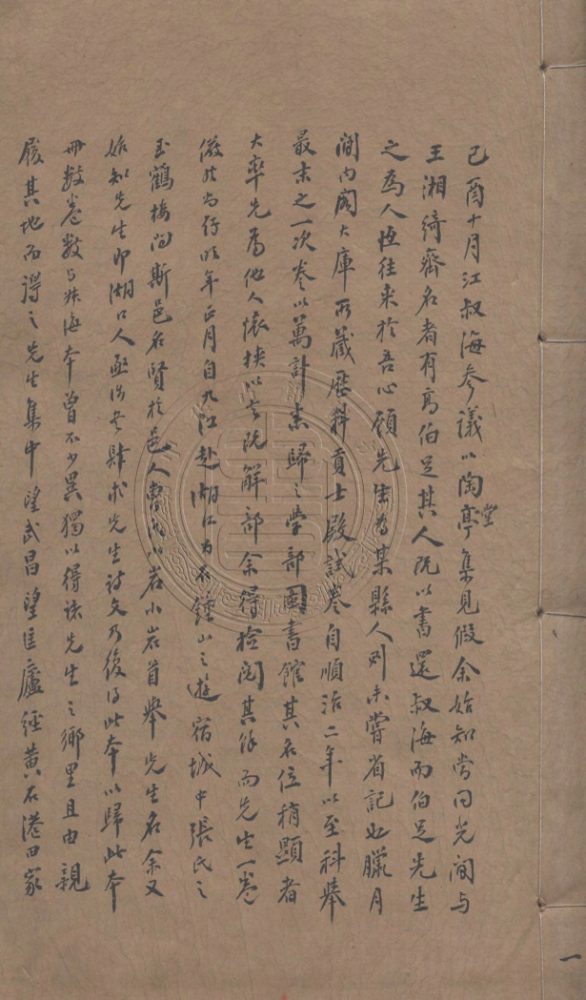 己酉十月江叔海参議以陶堂亭集見假余始知當同光間与
王湘綺齊名者有高伯足其人既以書還叔海而伯足先生
之為人恆往来於吾心顧先生為某縣人则未嘗省記也臘月
間内閣大庫所藏歷科貢士殿試卷自順治二年以至科舉
最末之一次卷以萬計悉歸之学部圖書館其名位稍顯者
大率先為他人懷挟以去既解部余得檢閱其餘而先生一卷
儼然為行明年正月自九江赴湖口為石鍾山之遊宿城中張氏之
玉鶴樓问斯邑名賢於邑人曹氏小岩小岩首舉先生名余又
始知先生即湖口人亟从書肆求先生詩文乃復得此本以歸此本
冊数卷数与叔海本曾不少異獨以得诸先生之鄉里且由親
履其地而得之先生集中望武昌望匡廬經黄石港田家
一